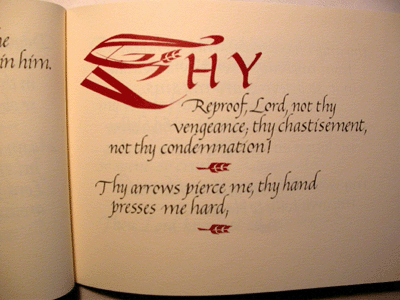 he
in him.
THY
Reproof, Lord, not thy
vengeance; thy chastisement,
not thy condemnation!
Thy arrows pierce me, thy hand
presses me hard,